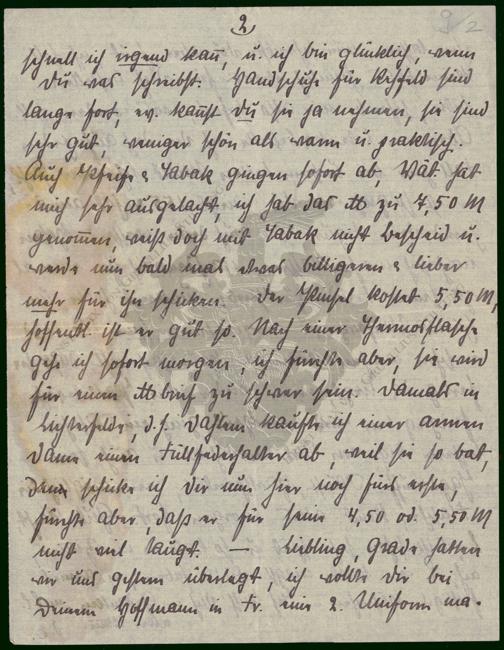 2
9/2
schnell ich irgend kann, u. ich bin glücklich, wenn
Du was schreibst. Handschuhe für sind
lange fort, ev. kannst Du sie ja nehmen, sie sind
sehr gut, weniger schön als warm u. praktisch.
Auch Pfeife & Tabak gingen sofort ab, Vat. hat
mich sehr ausgelacht, ich hab das ℔ zu 4,50 M
genommen, weiß doch mit Tabak nicht Bescheid u.
werde nun bald mal etwas billigeren & lieber
mehr für ihn schicken. Der Pinsel kostet 5,50 M,
hoffentl. ist er gut so. Nach einer Thermosflasche
gehe ich sofort morgen, ich fürchte aber, sie wird
für einen ℔brief zu schwer sein. Damals in
Lichterfelde, d.h. Dahlem kaufte ich einer armen
Dame einen Füllfederhalter ab, weil sie so bat,
den schicke ich Dir nun hier noch fürs erste,
fürchte aber, daß er für seine 4,50 od. 5,50 M
nicht viel taugt. — Liebling, grade hatten
wir uns gestern überlegt, ich wollte Dir bei
Deinem Hoffmann in Fr. eine 2. Uniform ma-